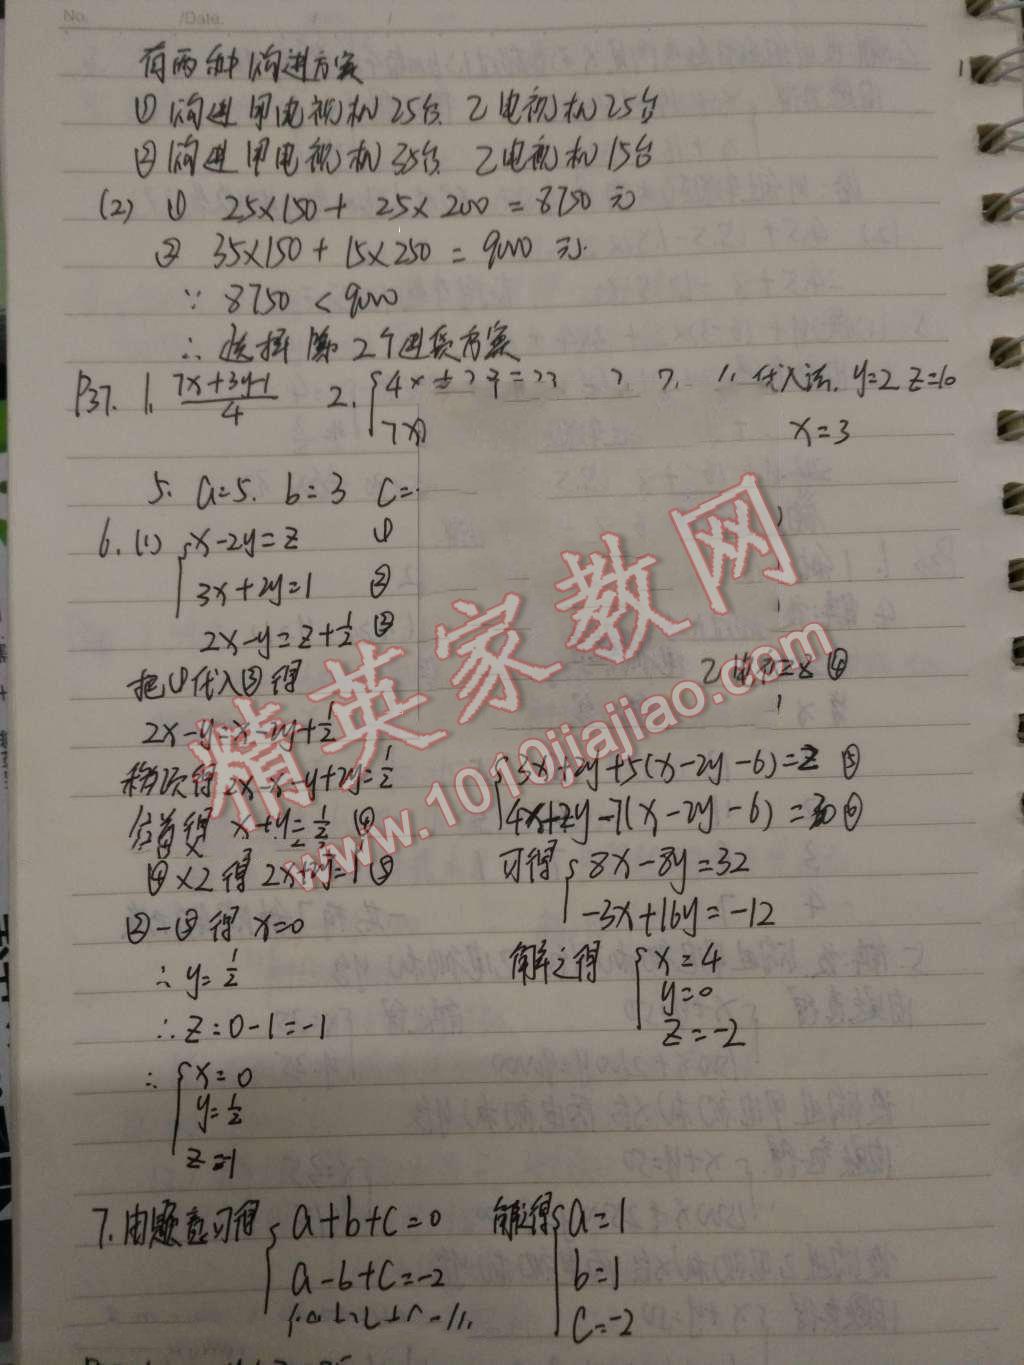 No. /Date. / /
有两种购进方案
① 购进甲电视机25台. 乙电视机25台
② 购进甲电视机35台. 乙电视机15台
(2) ① 25×150 + 25×200 = 8750 元
② 35×150 + 15×250 = 9000 元.
∵ 8750 < 9000
∴ 选择第2个进货方案
P37. 1. 7x+3y-1 / 4 2. { 4x 代入法. y=2 z=10
x=3
5. a=5. b=3 c=
6. (1) { x-2y=z ①
3x+2y=1 ②
2x-y=z+1/2 ③
把①代入③得
2x-y=x-2y+1/2
移项得 2x-x-y+2y=1/2
x+y=1/2 ④
④×2得 2x+2y=1 ⑤
②-⑤得 x=0
∴ y=1/2
∴ z=0-1=-1
∴ { x=0
y=1/2
z=-1
{ 3x+2y+5(x-2y-6)=2 ⑤
4x+2y-7(x-2y-6)=30 ⑥
可得 { 8x-8y=32
-3x+16y=-12
解之得 { x=4
y=0
z=-2
7. 由题意可得 { a+b+c=0
a-b+c=-2
解得 { a=1
b=1
c=-2
精英家教网
www.1010jiajiao.com